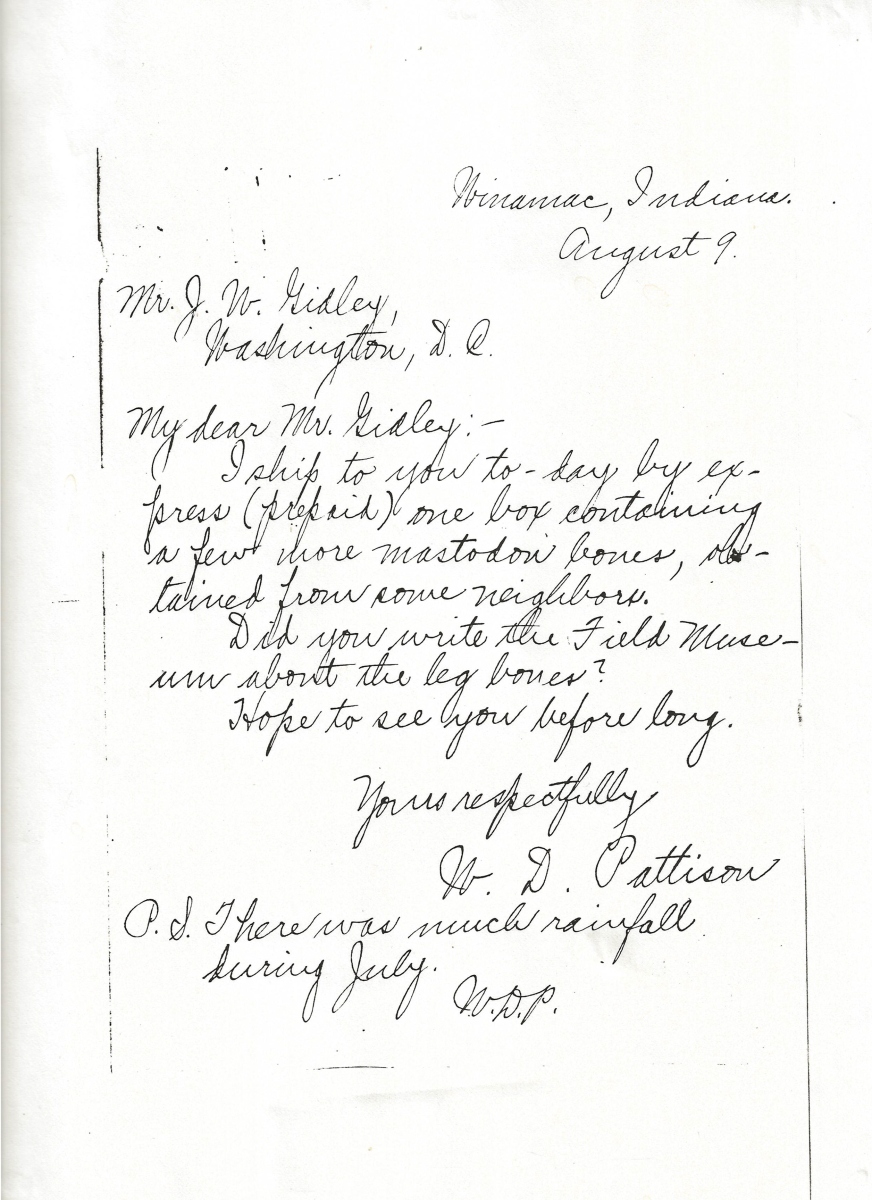 Winamac, Indiana.
August 9.
Mr. J. W. Gidley,
Washington, D. C.
My dear Mr. Gidley:-
I ship to you to-day by ex-
press (prepaid) one box containing
a few more mastodon bones, ob-
tained from some neighbors.
Did you write the Field Muse-
um about the leg bones?
Hope to see you before long.
Yours respectfully
W. D. Pattison
P.S. There was much rainfall
during July.
W.D.P.